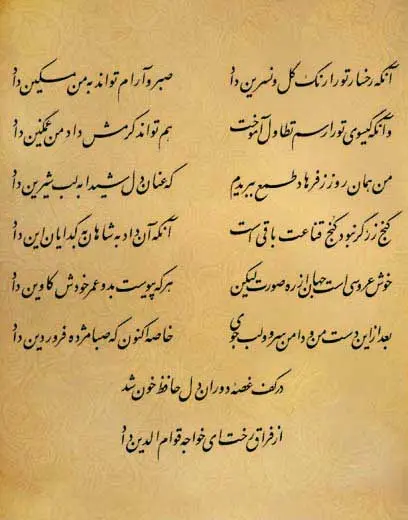 آنکه رخسار ترا رنگ گل و نسرین داد صبر و آرام تواند به من مسکین داد
وآنکه گیسوی ترا رسم تطاول آموخت هم تواند کرمش داد من غمگین داد
من همان روز ز فرهاد طمع ببریدم که عنان دل شیدا به لب شیرین داد
گنج زر گر نبود کنج قناعت باقی است آنکه آن داد به شاهان به گدایان این داد
خوش عروسی است جهان از ره صورت لیکن هر که پیوست بدو عمر خودش کاوین داد
بعد از این دست من و دامن سرو و لب جوی خاصه اکنون که صبا مژده فروردین داد
در کف غصه دوران دل حافظ خون شد
از فراق رخت ای خواجه قوام الدین داد